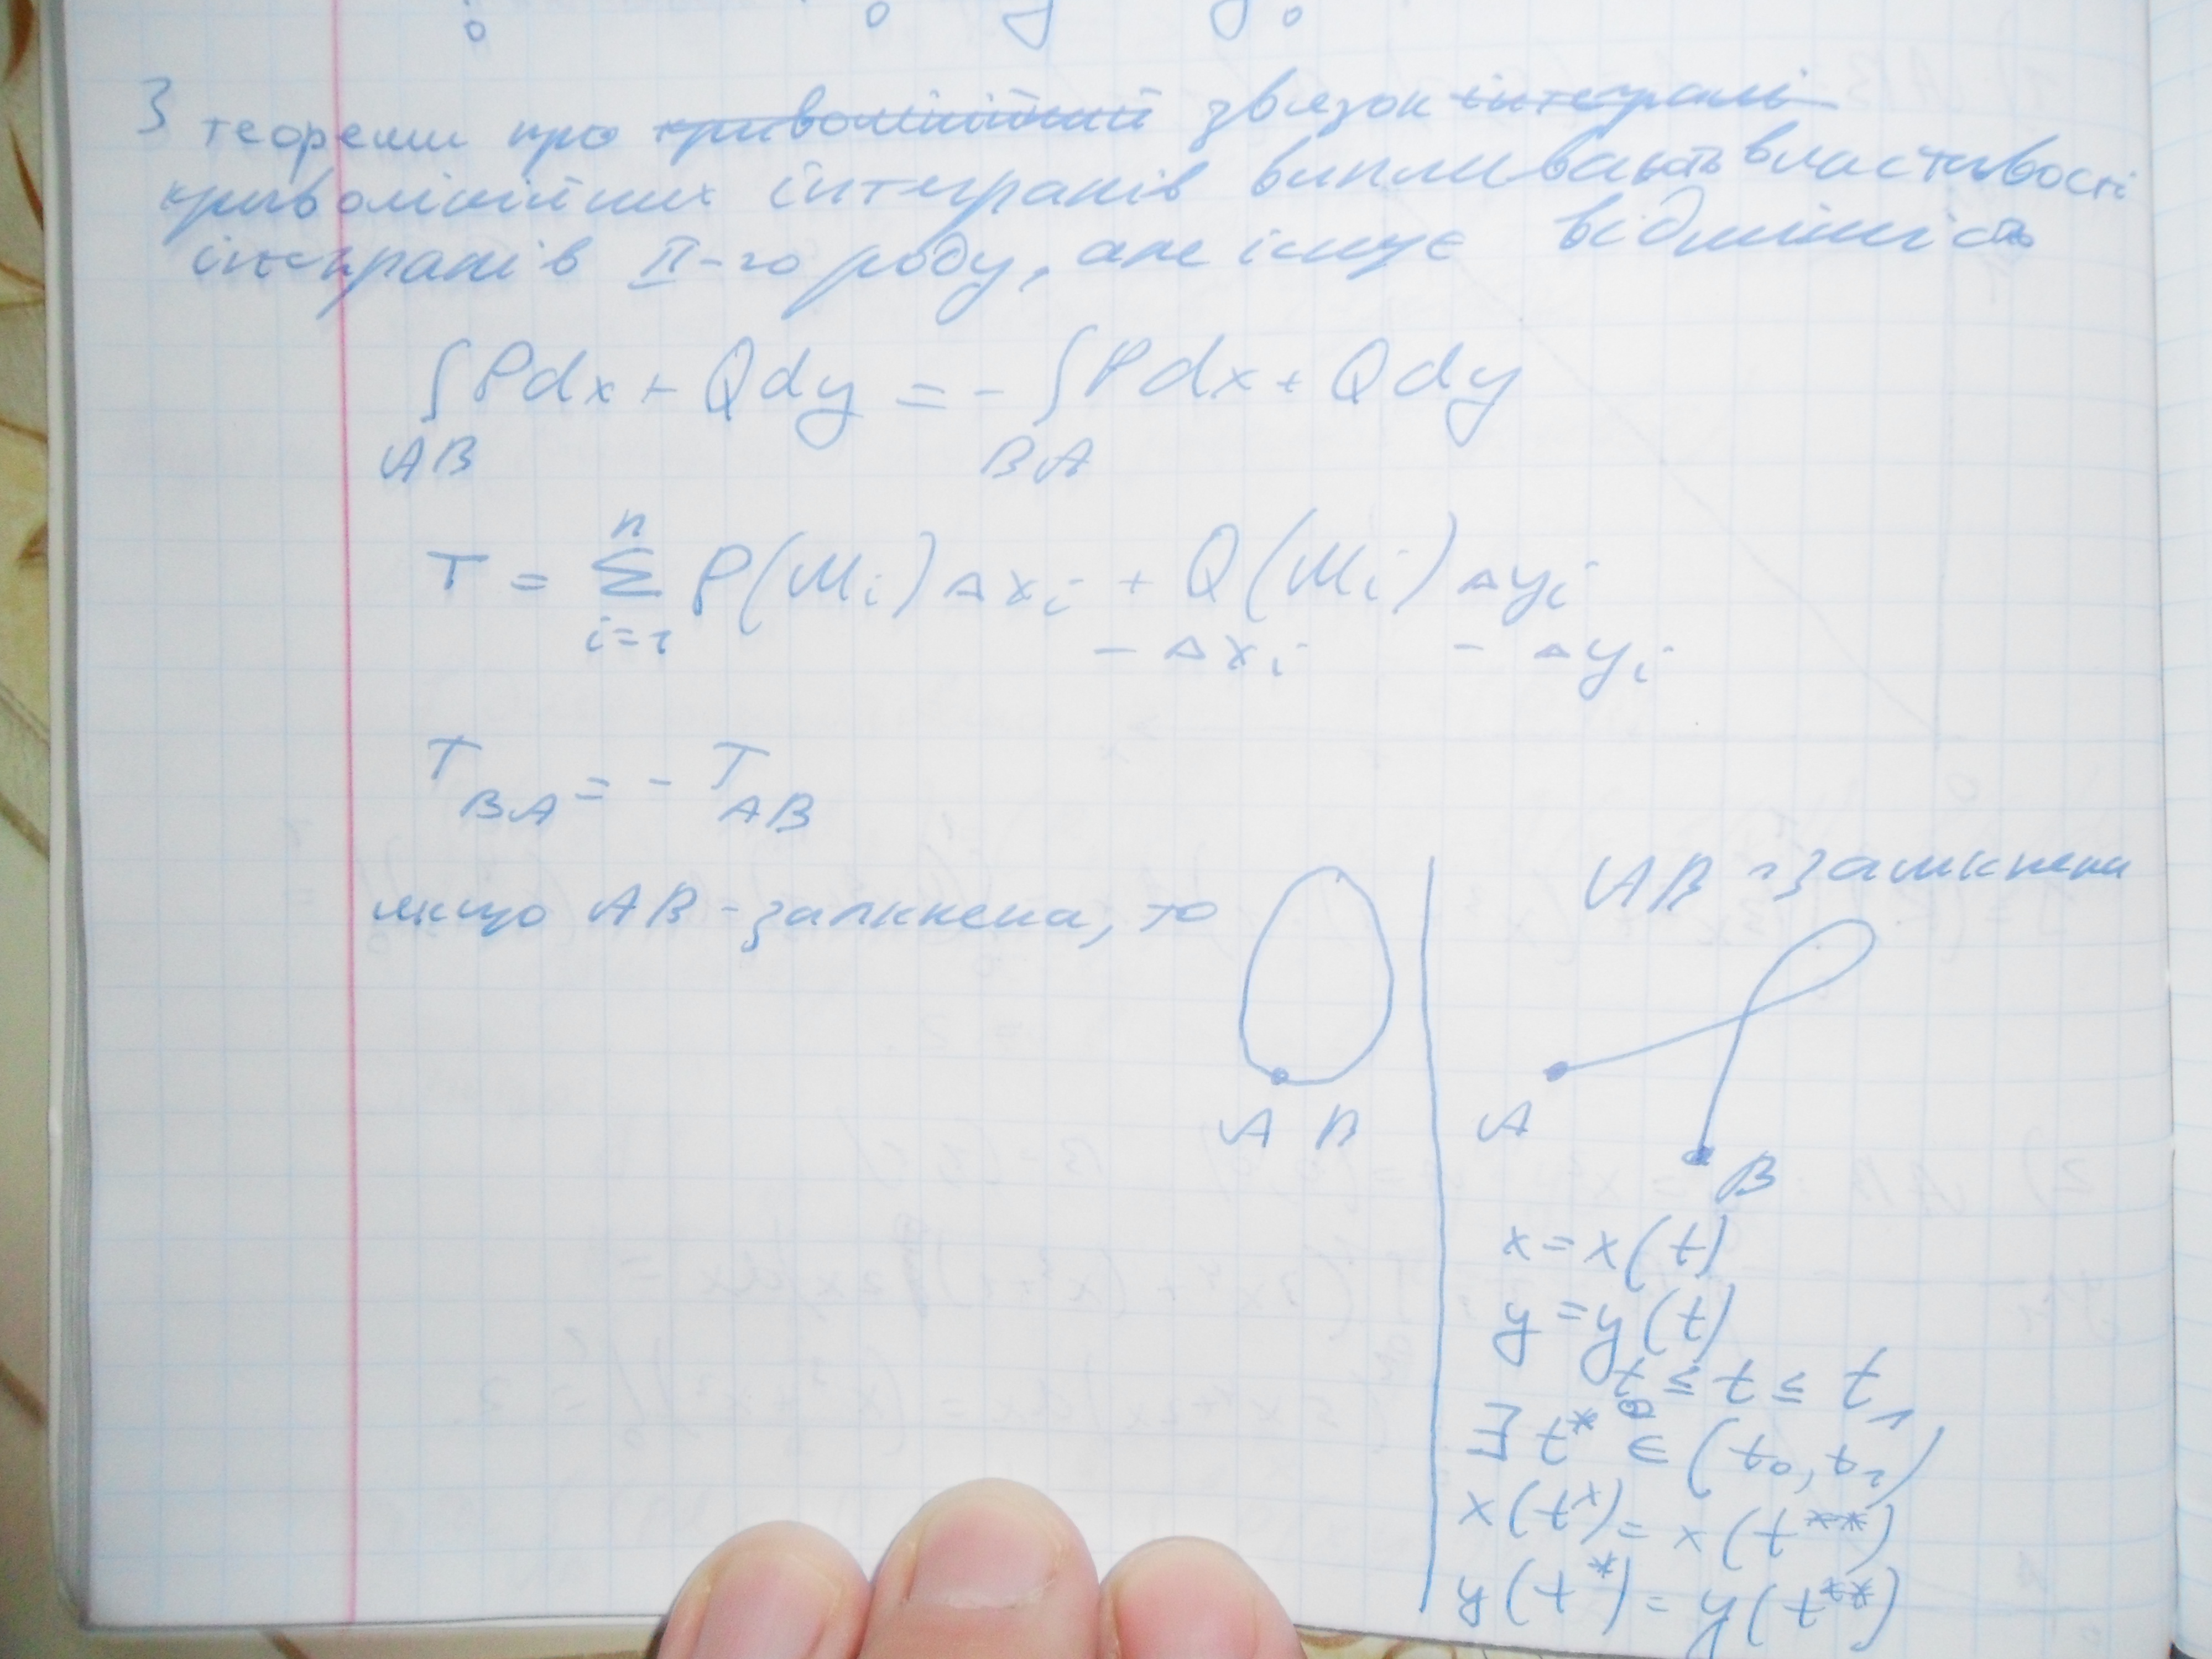 З теореми про криволінійний звязок інтегралі
криволінійних інтегралів випливають властивості
інтегралів II-го роду, але існує відмінність
∫ Pdx + Qdy = - ∫ Pdx + Qdy
AB BA
n
T = Σ P(Mi) Δxi + Q(Mi) Δyi
i=1 - Δxi - Δyi
T BA = - T AB
якщо AB - замкнена, то
A B
AB - замкнена
A
B
x = x(t)
y = y(t)
t0 ≤ t ≤ t1
∃ t* ∈ (t0, t1)
x(t*) = x(t**)
y(t*) = y(t**)